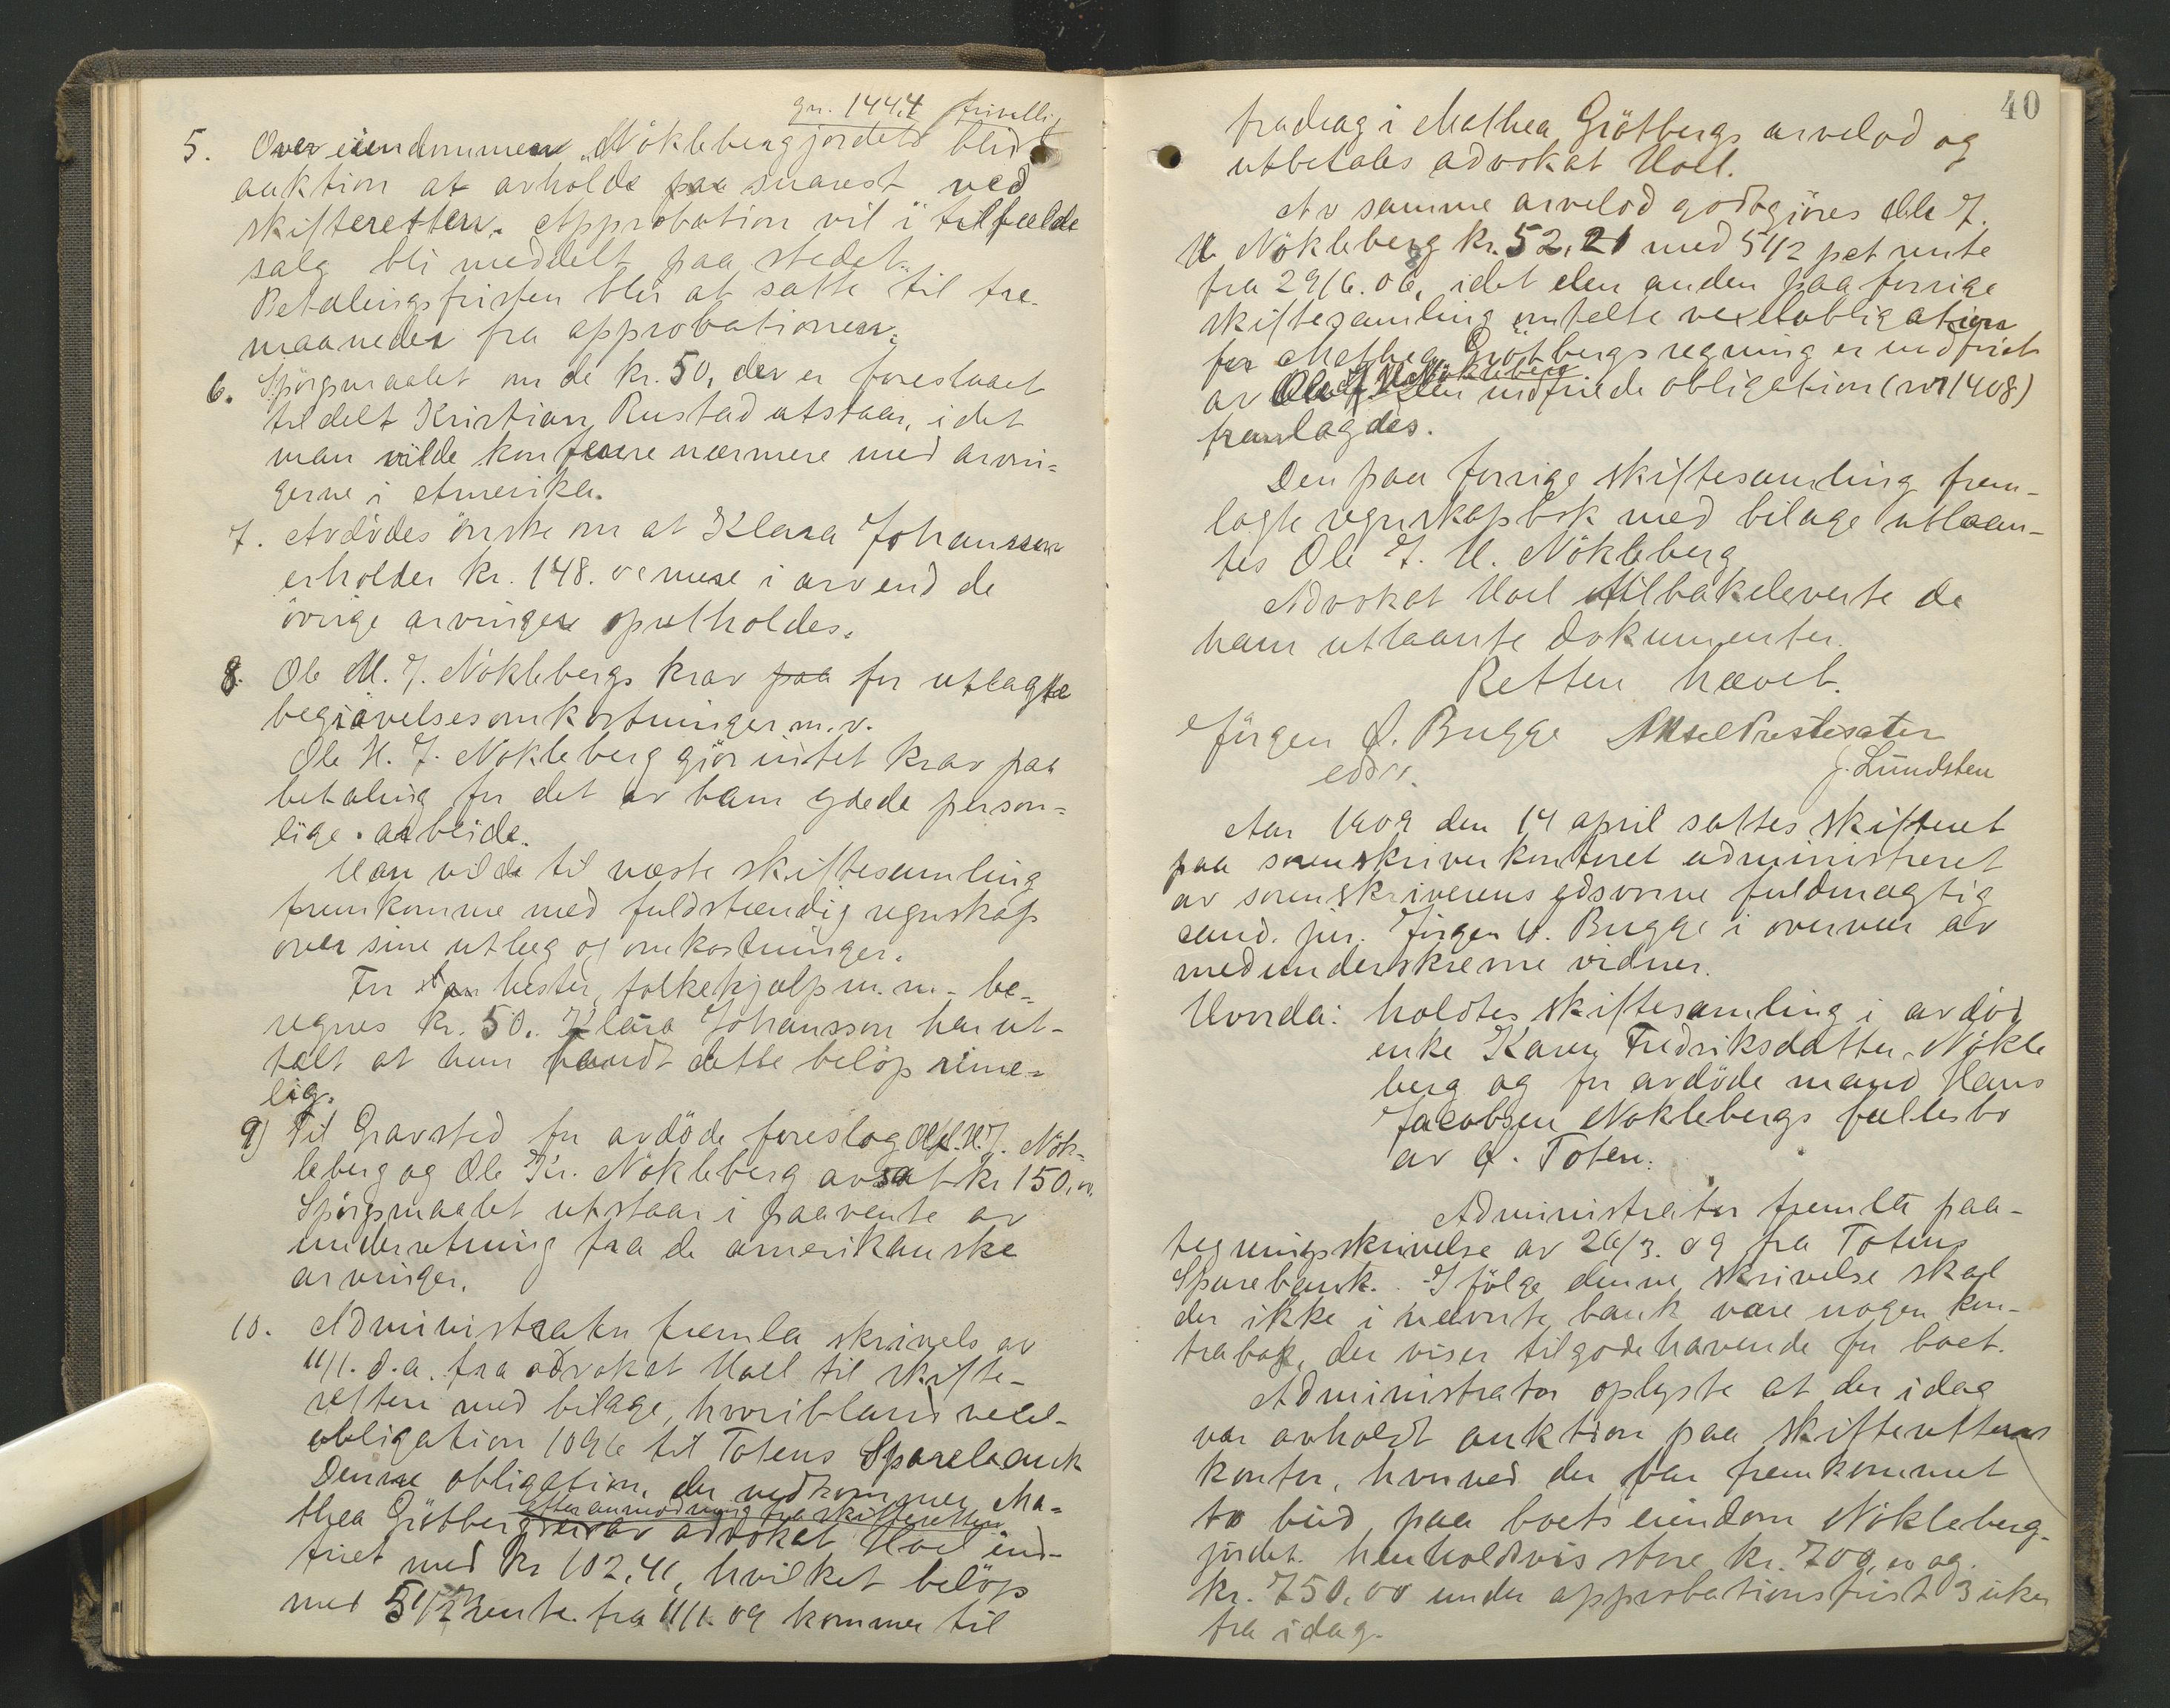 gn. 144.4 frivillig
5. Over eiendommen "Nökleberg jordet" blir
auktion at avholde paa snarest ved
skifteretten. Approbation vil i tilfælde
salg bli meddelt paa stedet.
Betalingsfristen blir at sætte til tre
maaneder fra approbationen.
6. Spörgsmaalet om de kr. 50, der er foreslaaet
tildelt Kristian Rustad utstaar, idet
man vilde konferere nærmere med arvin-
gerne i Amerika.
7. Avdödes önske om at Klara Johansson
erholder kr. 148. oo mere i arv end de
övrige arvinger opretholdes.
8. Ole H. J. Nöklebergs krav paa for utlagte
begravelsesomkostninger m. v.
Ole H. J. Nökleberg gjör intet krav paa
betaling for det av ham ydede person-
lige arbeide.
Han vilde til næste skiftesamling
fremkomme med fuldstændig regnskap
over sine utlæg og omkostninger.
For hester, folkehjælp m. m. be-
regnes kr. 50. Klara Johansson har ut-
talt at hun fandt dette belöp rime-
lig.
9) Til Gravsted for avdöde foreslog Ole H. J. Nök-
leberg og Ole Kr. Nökleberg avsat kr 150, oo.
Spörgsmaalet utstaar i paavente av
underretning fra de amerikanske
arvinger.
10. Administrator fremla skrivels av
11/1. d. a. fra advokat Hoel til skifte-
retten med bilage, hvoriblandt vexel-
obligation 1096 til Totens Sparebank
Denne obligation, der vedkommer Ma-
efter anmodning fra skifteretten
thea Grötberg er av advokat Hoel ind-
friet med kr 102,41, hvilket belöp
med 5 1/2 % rente fra 11/1 09 kommer til
40
fradrag i Mathea Grötbergs arvelod og
utbetales advokat Hoel.
Av samme arvelod godtgjöres Ole J.
H. Nökleberg kr. 52,21 med 5 1/2 pct rente
fra 29/6. 06, idet den anden paa forrige
skiftesamling omtalte vexelobligation
for Mathea Grötbergs regning er indfriet
Ole J. H. Nökleberg
av Den indfriede obligation (no 1408)
fremlagdes.
Den paa forrige skiftesamling frem-
lagte regnskapsbok med bilage utlaan-
tes Ole J. H. Nökleberg
Advokat Hoel tilbakeleverte de
ham utlaante dokumenter.
Retten hævet.
Jörgen H. Bugge Aksel Prestesæter
edsv. J. Lundsten
Aar 1909 den 14 april sattes skifteret
paa sorenskriverkontoret administreret
av sorenskriverens edsvorne fuldmægtig
cand. jur. Jörgen H. Bugge i overvær av
medunderskrevne vidner.
Hvorda: holdtes skiftesamling i avdöd
enke Karen Fredriksdatter Nökle
berg og for avdöde mand Hans
Jacobsen Nöklebergs fællesbo
av Ö. Toten.
Administrator fremla paa-
tegningsskrivelse av 26/3. 09 fra Totens
Sparebank. I fölge denne skrivelse skal
der ikke i nævnte bank være nogen kon-
trabok, der viser tilgodehavende for boet.
Administrator oplyste at der idag
var avholdt auktion paa skifterettens
kontor, hvorved der var fremkommet
to bud paa boets eiendom Nökleberg-
jordet henholdsvis store kr. 709, oo og
kr. 750. oo under approbationsfrist 3 uker
fra idag.